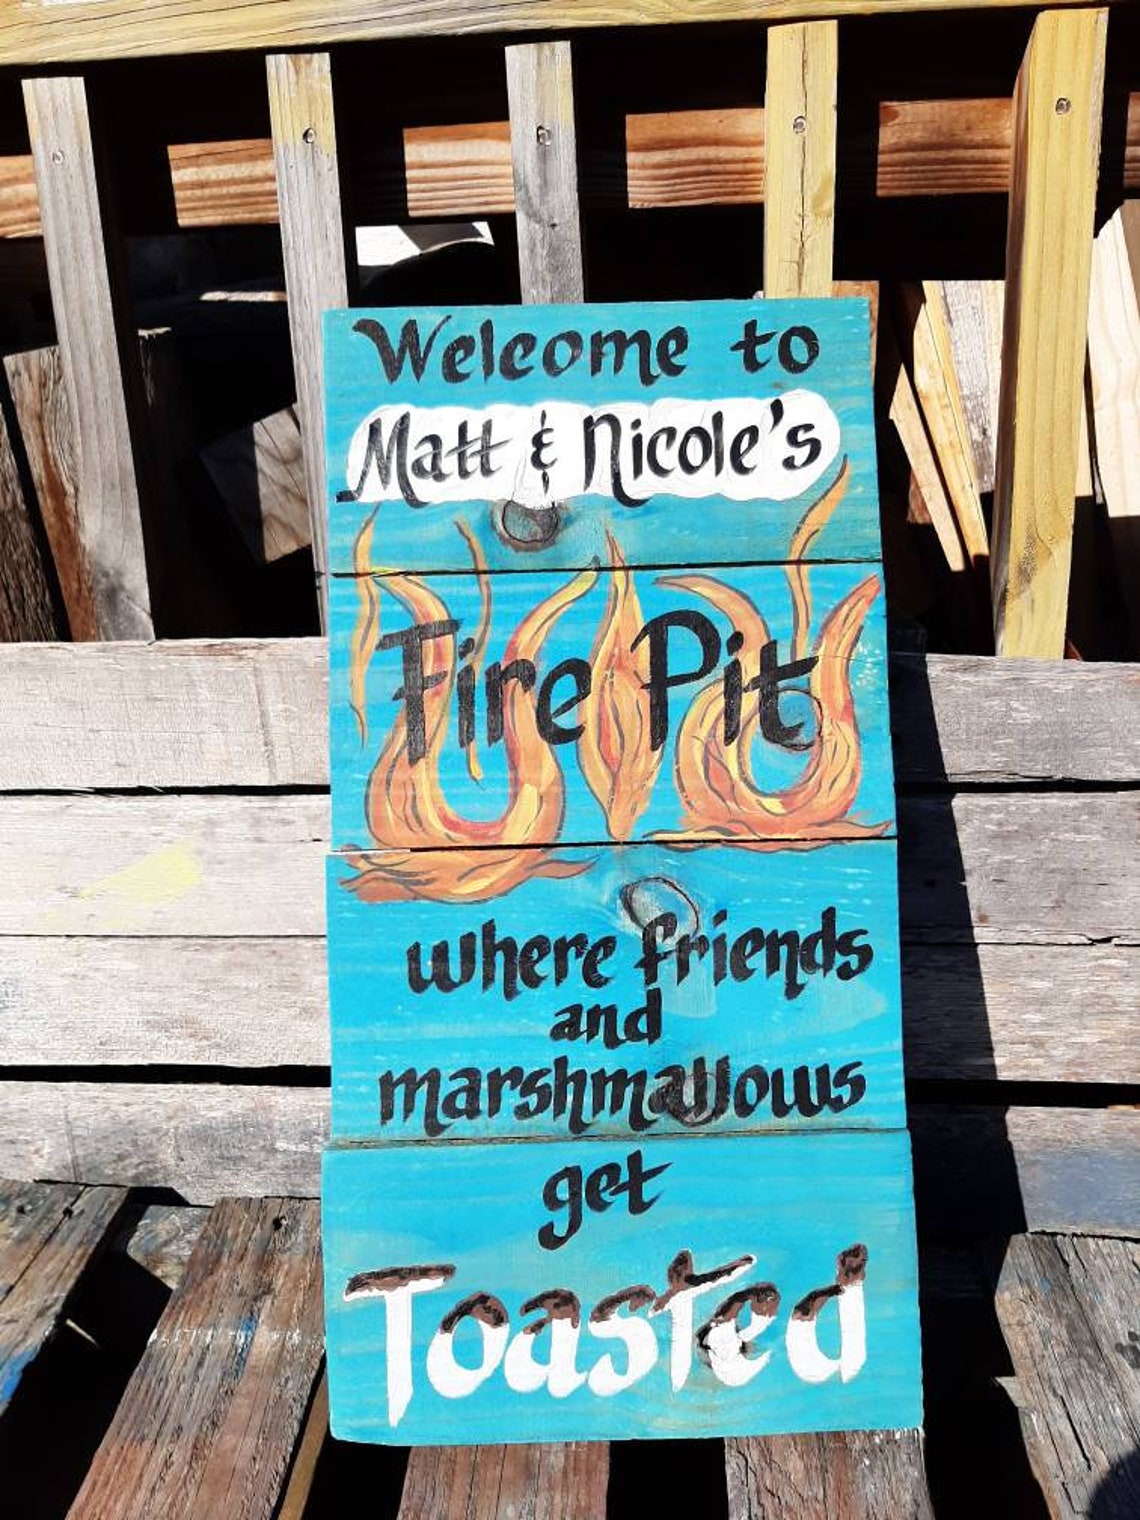 Welcome to
Matt & Nicole's
Fire Pit
where friends
and
marshmallows
get
Toasted